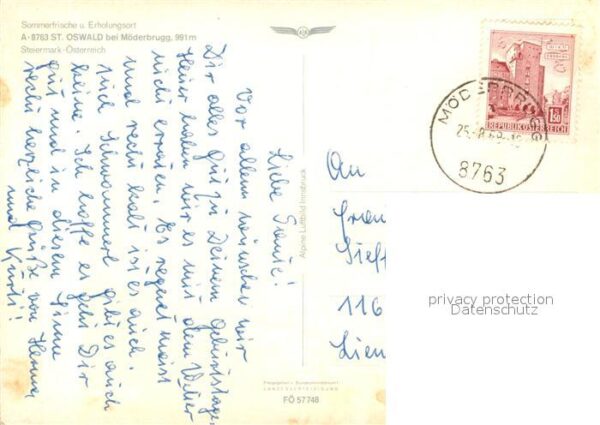 Sommerfrische u. Erholungsort
A-8763 ST. OSWALD bei Möderbrugg, 991 m
Steiermark-Österreich
Liebe Tante!
Vor allem wünschen wir
Dir alles Gute zu Deinem Geburtstage.
Heuer haben wir es mit dem Wetter
nicht erraten. Es regnet meist
und recht kalt ist es auch.
Und Schwammerl gibt es auch
keine. Ich hoffe es geht Dir
gut und in diesem Sinne
recht herzliche Grüße von
und Kurti!
Alpine Luftbild Innsbruck
FÖ 57748
REPUBLIK ÖSTERREICH
1.50
MÖDERBRUGG
8763
An
Frau
116
privacy protection
Datenschutz